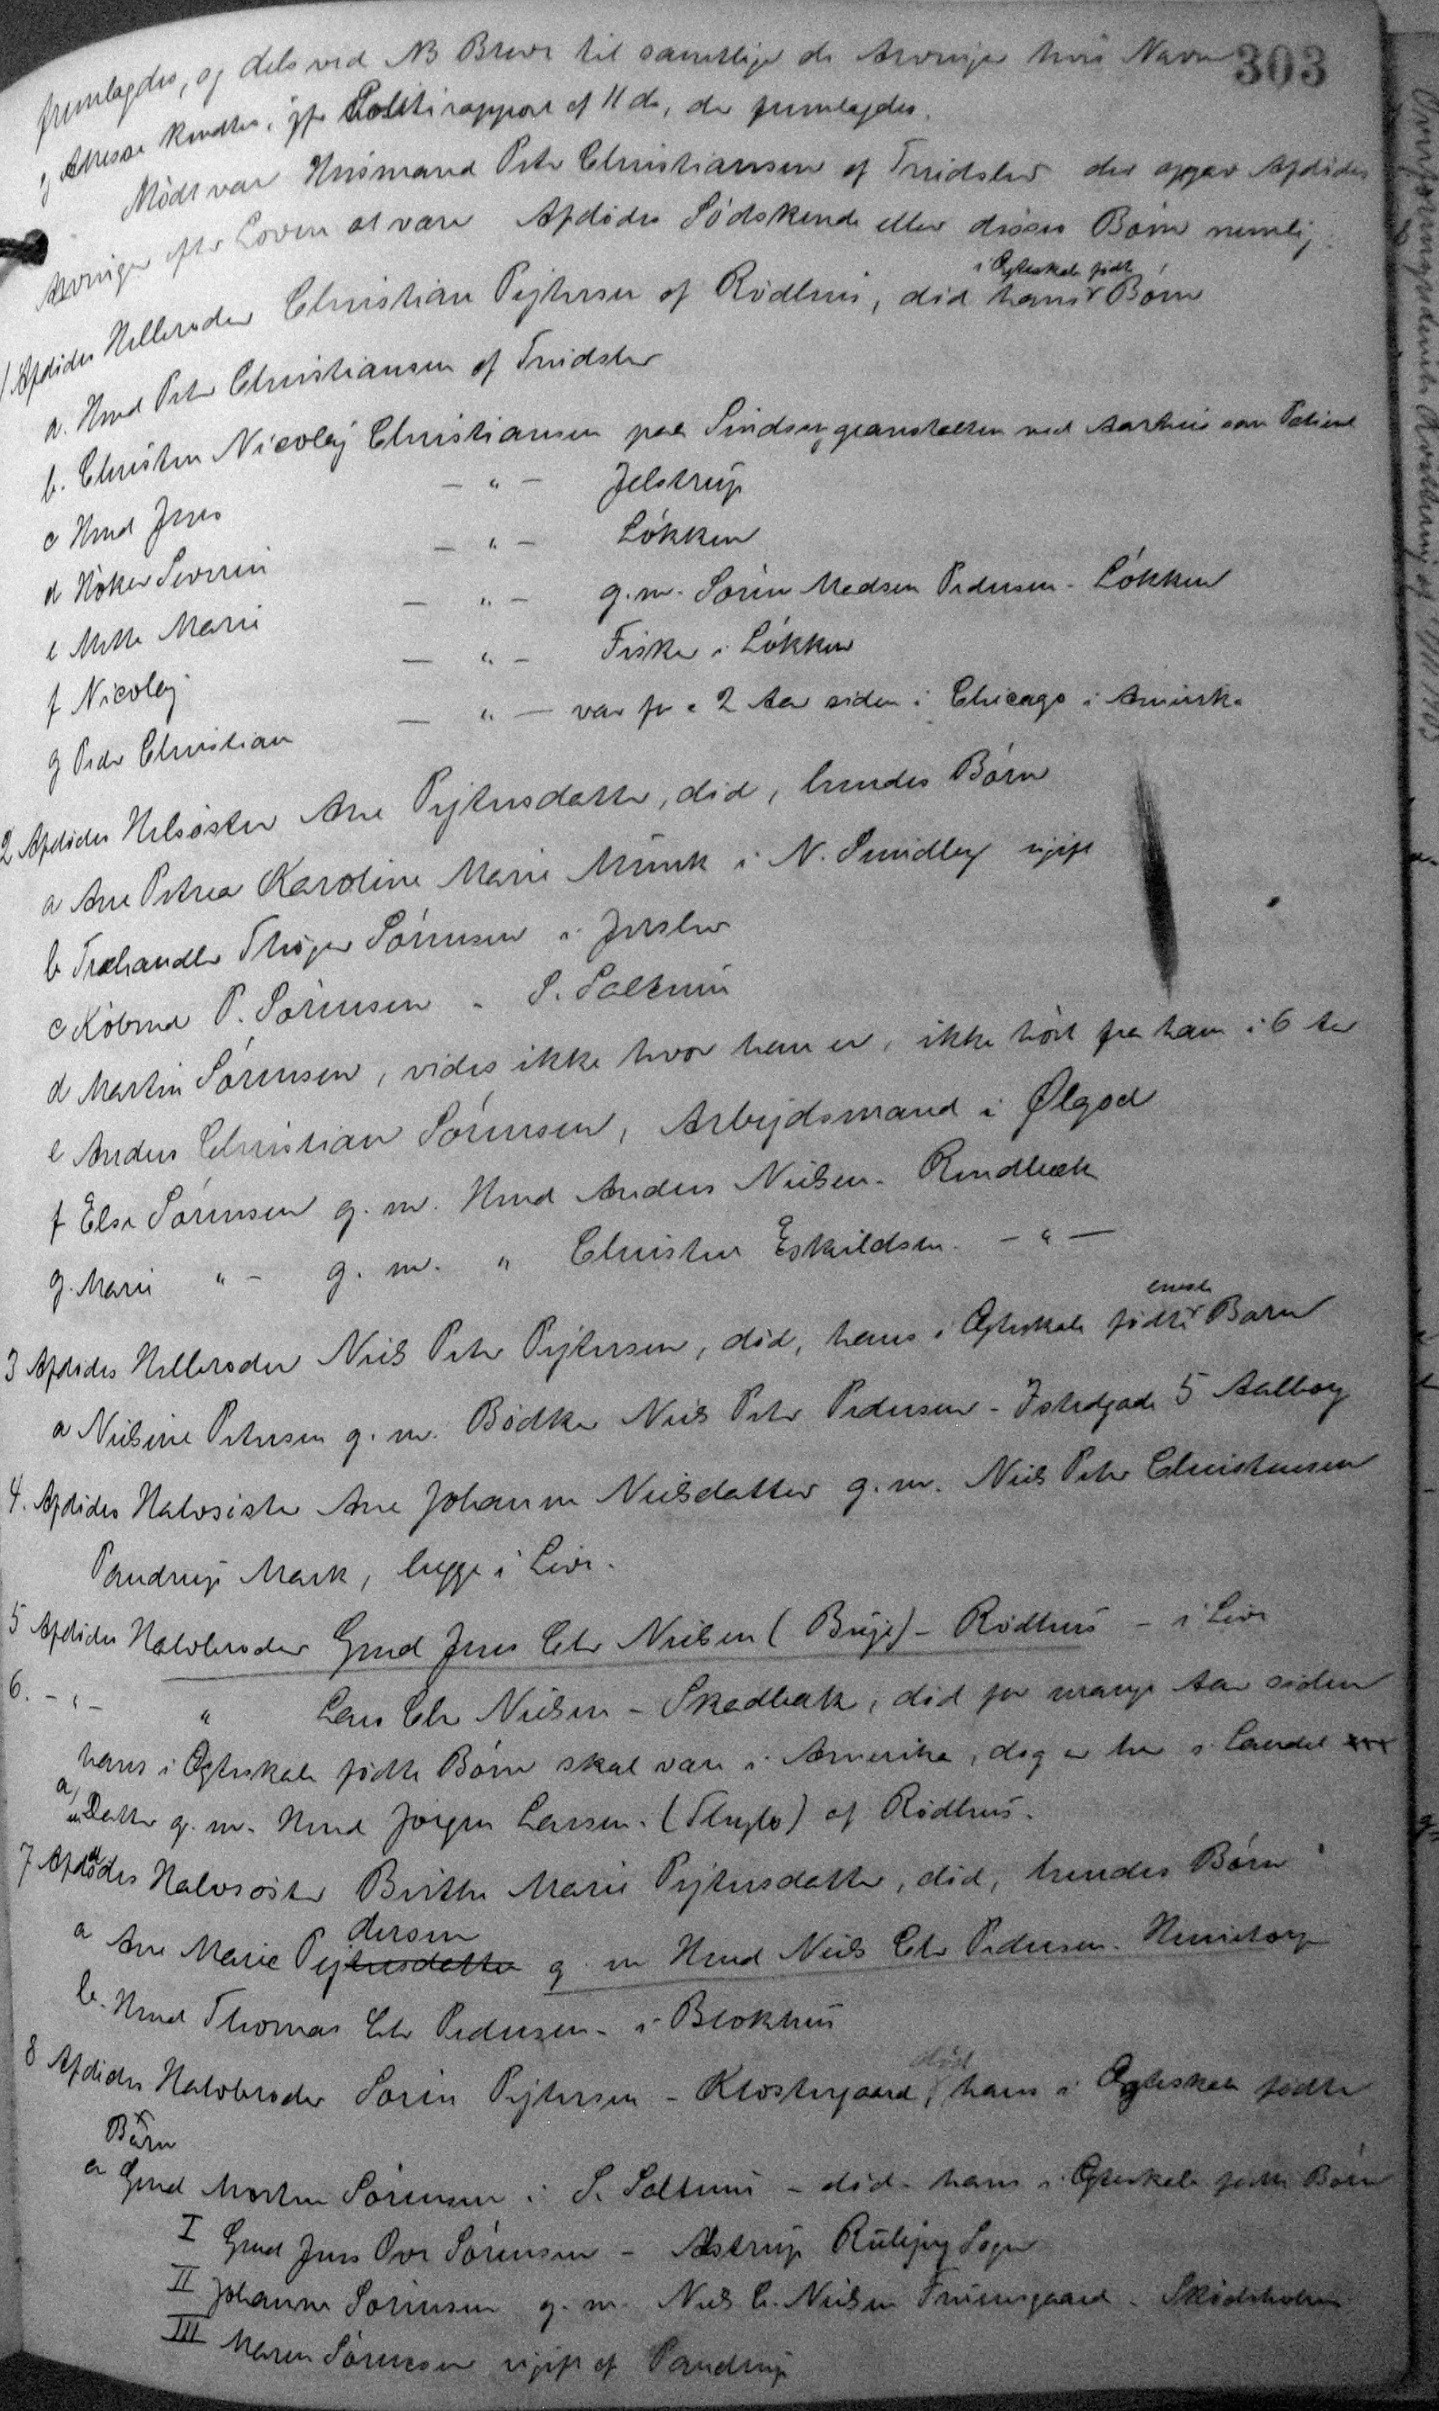 303
fremlagdes, og dels ved NB Breve til samtlige de Arvinger hvis Navn
og Adresse kendtes, jfr Politirapport af 11 ds, der fremlagdes.
Mødt var Husmand Peter Christiansen af Truidslev der opgav Afdødes
Arvinger efter Loven at være Afdødes Södskende eller disses Börn nemlig:
1. Afdödes Helbroder Christian Pejtersen af Rödhus, död hans i Ægteskab födte Börn
a. Hmd Peter Christiansen af Truidslev
b. Christen Nicolaj Christiansen paa Sindsygeanstalten ved Aarhus som Patient
c Hmd Jens — " — Jelstrup
d Höker Severin — " — Lökken
e Mette Marie — " — g.m. Sören Madsen Pedersen - Lökken
f Nicolaj — " — Fisker i Lökken
g Peder Christian — " — var for c 2 Aar siden i Chicago i Amerika
2 Afdödes Helsöster Ane Pejtersdatter, död, hendes Börn
a Ane Petrea Karoline Marie Munk i N. Smidley ugift
b Træhandler Thöger Sörensen i Jerslev
c Köbmd P. Sörensen - S. Saltum
d Martin Sörensen, vides ikke hvor han er, ikke hört fra ham i 6 Aar
e Anders Christian Sörensen, Arbejdsmand i Ølgod
f Else Sörensen g. m. Hmd Anders Nielsen - Rendbæk
g. Marie " - g. m. " Christen Eskildsen - " —
3 Afdödes Helbroder Niels Peter Pejtersen, död, hans i Ægteskab födte eneste Barn
a Nielsine Petersen g. m. Bödker Niels Peter Pedersen - Istedgade 5 Aalborg
4. Afdödes Halvsöster Ane Johanne Nielsdatter g. m. Niels Peter Christensen
Pandrup Mark, begge i Live.
5 Afdödes Halvbroder Gmd Jens Chr Nielsen (Buje) - Rödhus - i Live
6. - " - " Lars Chr Nielsen - Skadbæk, död for mange Aar siden
hans i Ægteskab födte Börn skal være i Amerika, dog er her i Landet
a, en Datter g. m. Hmd Jörgen Larsen. ( ) af Rödhus.
7 Afdödes Halvsöster Birthe Marie Pejtersdatter, död, hendes Börn
a Ane Marie Pejtersdatter dersen g m Hmd Niels Chr Pedersen - Hunetorp
b. Hmd Thomas Chr Pedersen - i Blokhus
8 Afdödes Halvbroder Sören Pejtersen - Klostergaard, död hans i Ægteskab födte
Börn
a Gmd Morten Sörensen i S. Saltum - död - hans i Ægteskab födte Börn
I Gmd Jens Ove Sörensen - Alstrup Rubjerg Sogn
II Johanne Sörensen g. m. Niels C. Nielsen Fruensgaard - Sködsholm
III Maren Sörensen ugift af Pandrup